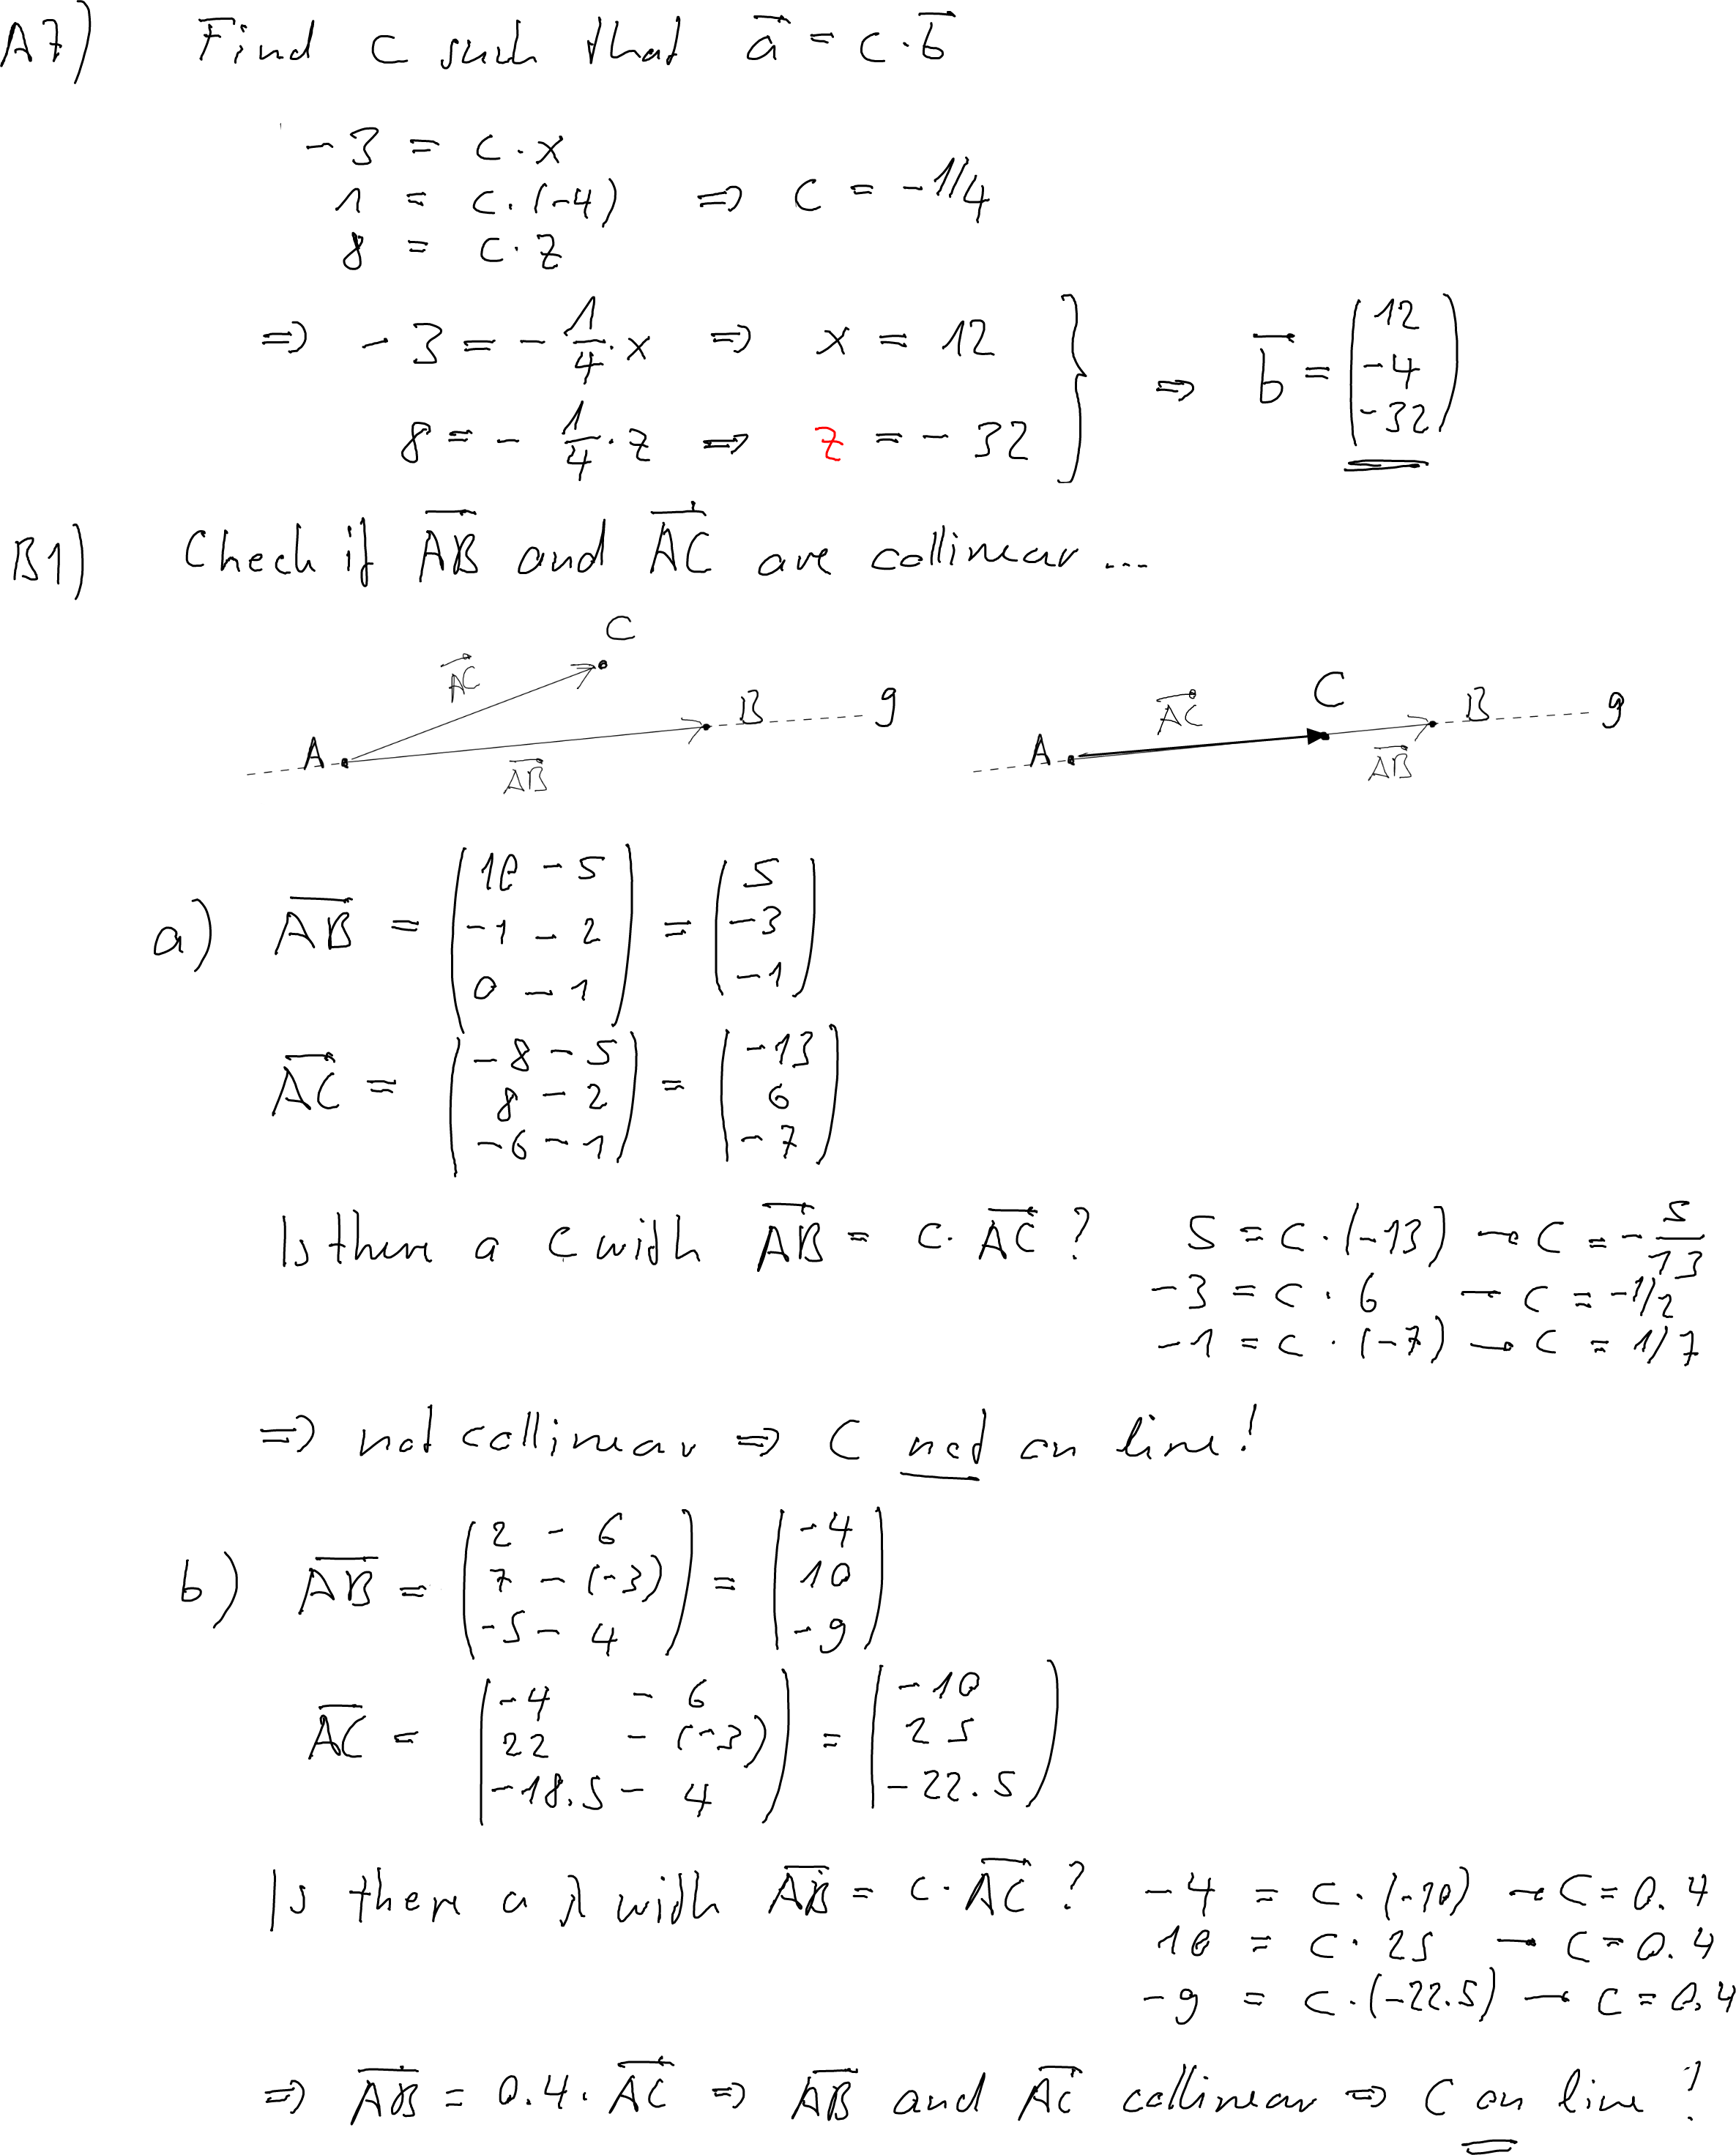 A7) Find c such that a⃗ = c·b⃗
-3 = c·x
1 = c·(-4) ⇒ c = -1/4
8 = c·z
⇒ -3 = -1/4·x ⇒ x = 12
8 = -1/4·z ⇒ z = -32
⇒ b⃗ = (12 -4 -32)
B1) Check if AB and AC are collinear...
C
AC
A
B
g
AB
C
AC
A
B
g
AB
a) AB = (10-5 -1-2 0-1) = (5 -3 -1)
AC = (-8-5 8-2 -6-1) = (-13 6 -7)
Is there a c with AB = c·AC? 5 = c·(-13) → c = -5/13
-3 = c·6 → c = -1/2
-1 = c·(-7) → c = 1/7
⇒ not collinear ⇒ C not on line!
b) AB = (2-6 7-(-3) -5-4) = (-4 10 -9)
AC = (-4-6 22-(-3) -18.5-4) = (-10 25 -22.5)
Is there a λ with AB = c·AC? -4 = c·(-10) → c = 0.4
10 = c·25 → c = 0.4
-9 = c·(-22.5) → c = 0.4
⇒ AB = 0.4·AC ⇒ AB and AC collinear ⇒ C on line!